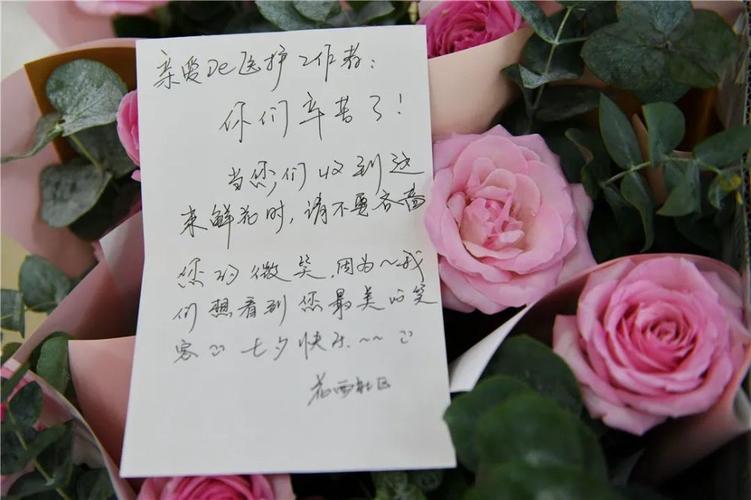 亲爱De医护工作者:
你们辛苦了!
当您们收到这
束鲜花时,请不要吝啬
您的微笑,因为~我
们想看到您最美的笑
容☺七夕快乐~~☺
花西社区